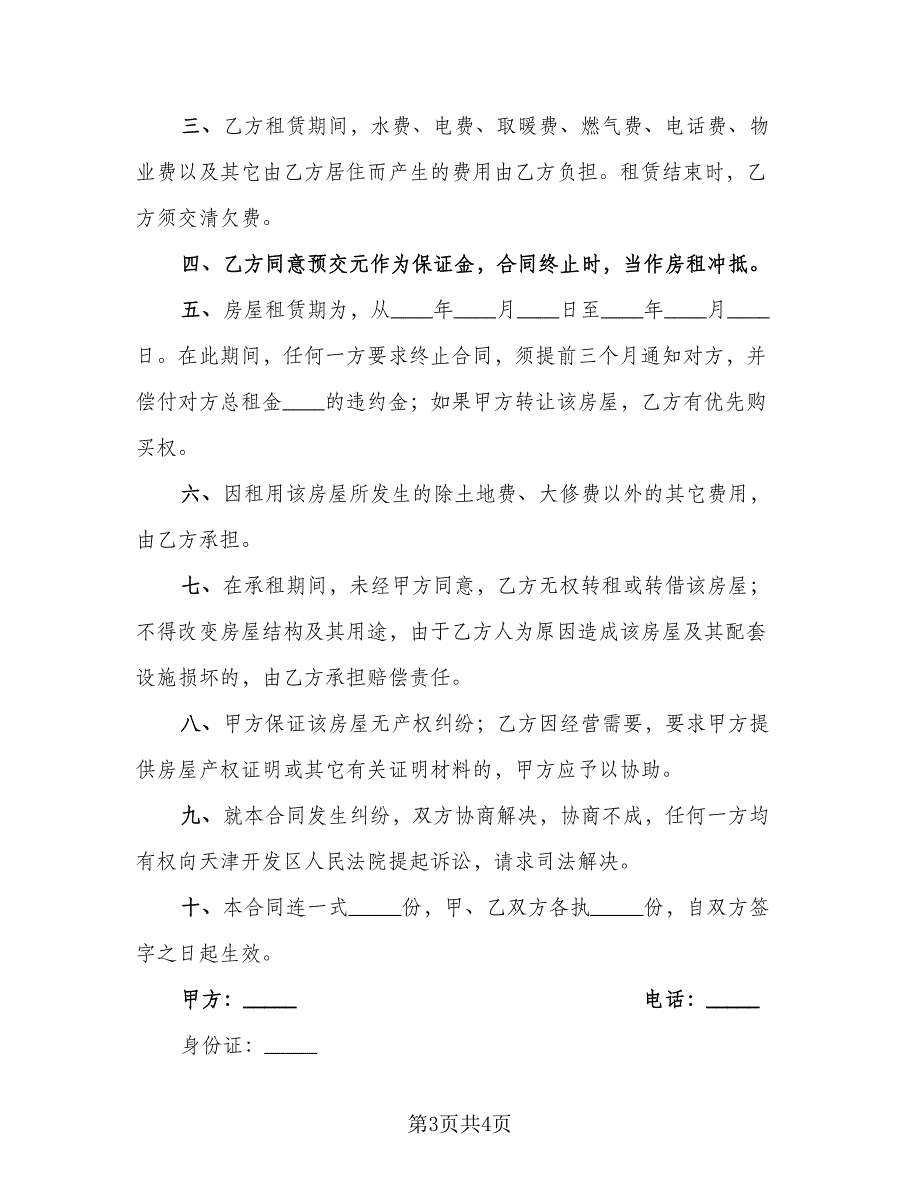 三、乙方租赁期间，水费、电费、取暖费、燃气费、电话费、物
业费以及其它由乙方居住而产生的费用由乙方负担。租赁结束时，乙
方须交清欠费。
四、乙方同意预交元作为保证金，合同终止时，当作房租冲抵。
五、房屋租赁期为，从____年____月____日至____年____月____
日。在此期间，任何一方要求终止合同，须提前三个月通知对方，并
偿付对方总租金____的违约金；如果甲方转让该房屋，乙方有优先购
买权。
六、因租用该房屋所发生的除土地费、大修费以外的其它费用，
由乙方承担。
七、在承租期间，未经甲方同意，乙方无权转租或转借该房屋；
不得改变房屋结构及其用途，由于乙方人为原因造成该房屋及其配套
设施损坏的，由乙方承担赔偿责任。
八、甲方保证该房屋无产权纠纷；乙方因经营需要，要求甲方提
供房屋产权证明或其它有关证明材料的，甲方应予以协助。
九、就本合同发生纠纷，双方协商解决，协商不成，任何一方均
有权向天津开发区人民法院提起诉讼，请求司法解决。
十、本合同连一式_____份，甲、乙双方各执_____份，自双方签
字之日起生效。
甲方：_____ 电话：_____
身份证：_____
第3页共4页